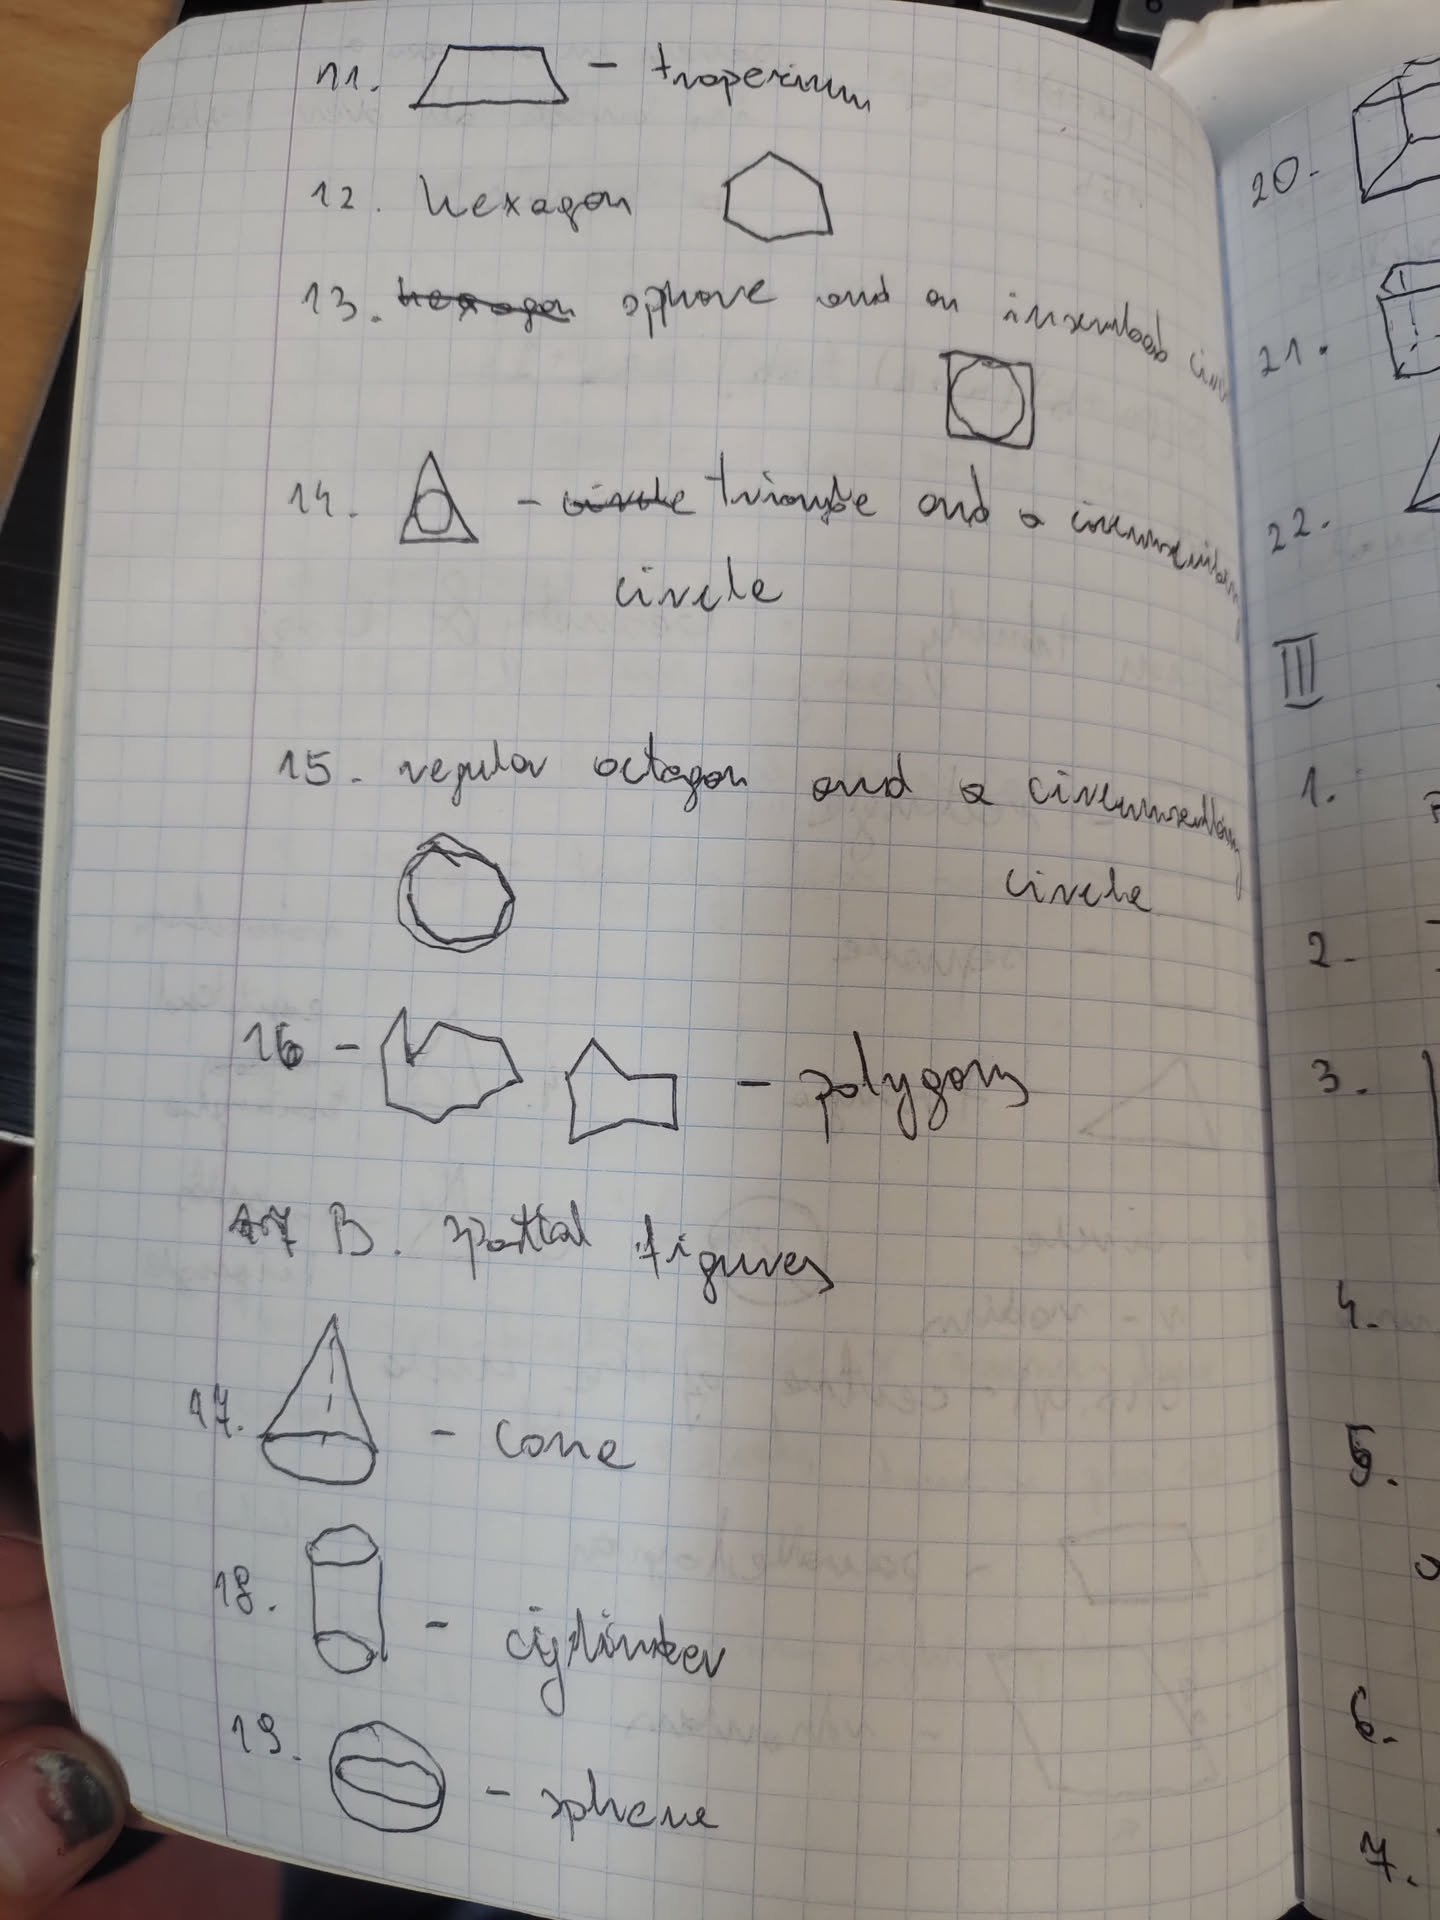 11. - traperium
12. hexagon
13. hexagon sphore and an inscribed
14. - circle triangle and a
circle
15. regular octagon and a
circle
16 - - polygons
17 B. spattal figures
17. - cone
18. - cijlinder
19. - sphere
20.
21.
22.
III
1.
2.
3.
4.
5.
6.
7.